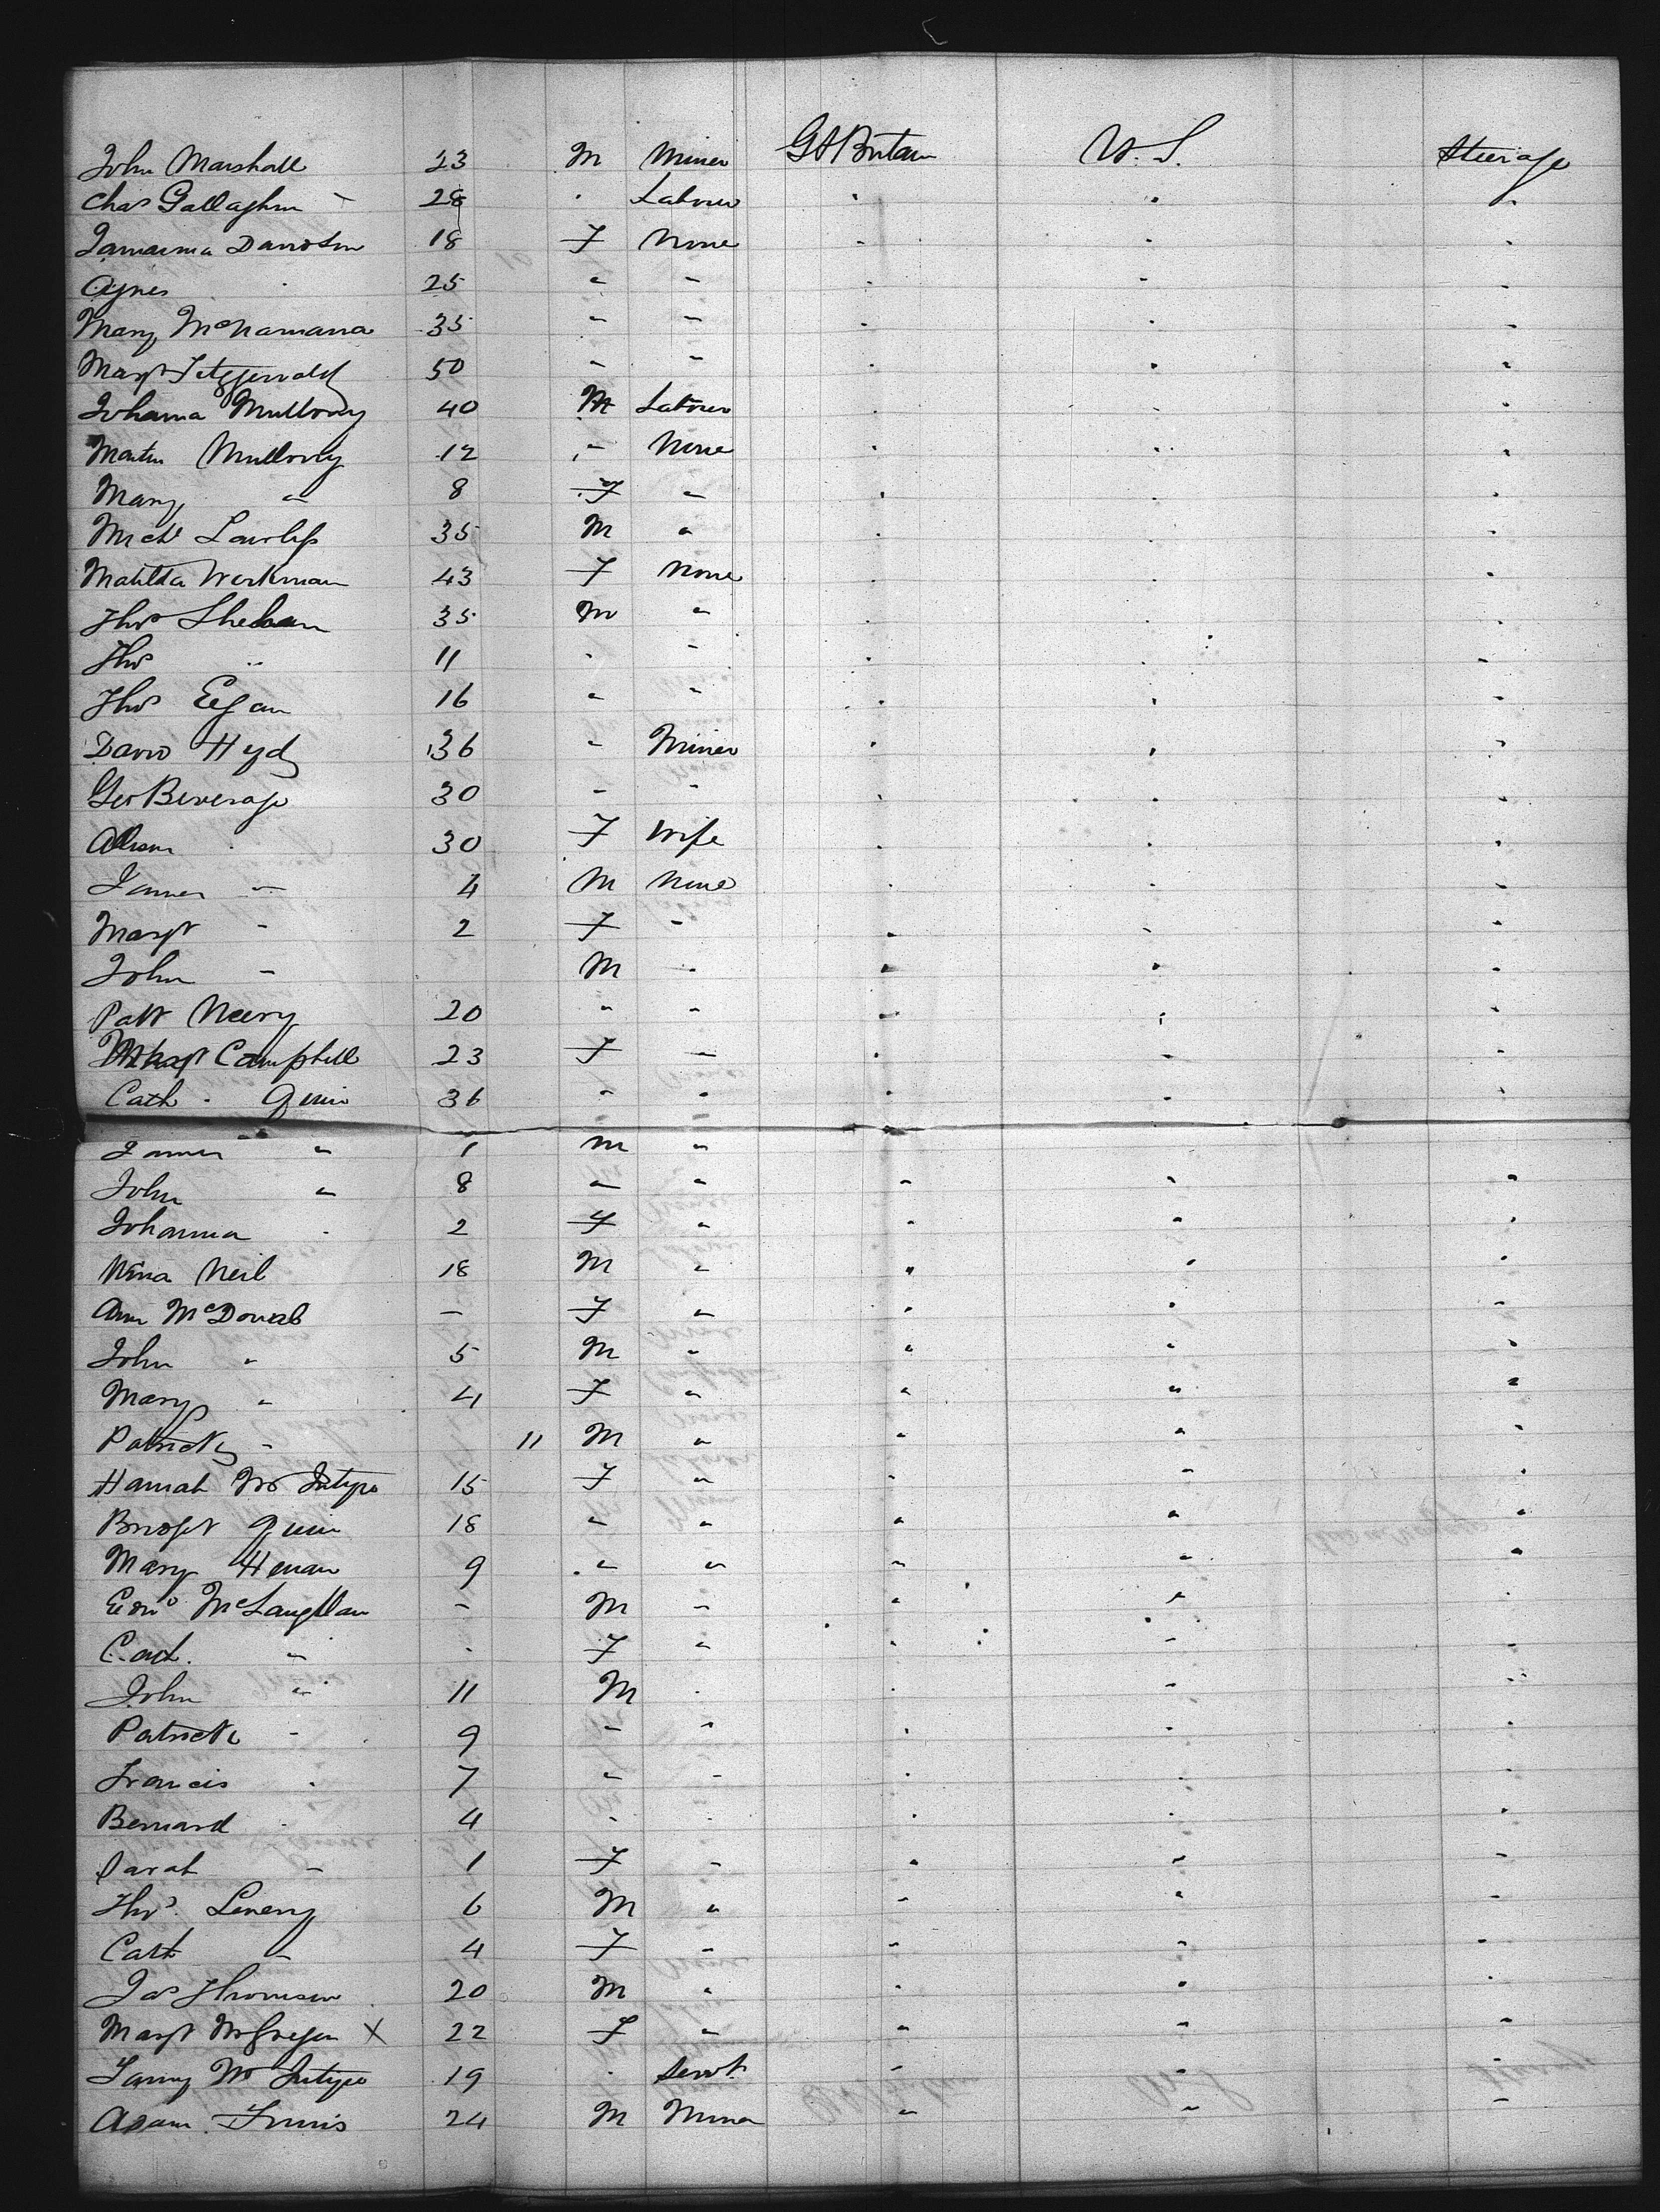 John Marshall 23 M Miner Gt Britain U.S. Steerage
Chas Gallagher 28 " Laborer " " "
Jamaima Davidson 18 F None " " "
Agnes " 25 " " " " "
Mary McNamara 35 " " " " "
Margt Fitzgerald 50 " " " " "
Johanna Mullony 40 M Laborer " " "
Martin Mullony 12 " None " " "
Mary " 8 F " " " "
Michl Lawless 35 M " " " "
Matilda Workman 43 F None " " "
Thos Sheehan 35 M " " " "
Thos " 11 " " " " "
Thos Egan 16 " " " " "
David Hyd 36 " Miner " " "
Geo Beverage 30 " " " " "
Alison " 30 F Wife " " "
James " 4 M None " " "
Margt " 2 F " " " "
John " M " " " "
Patk Neery 20 " " " " "
Margt Campbell 23 F " " " "
Cath Quin 36 " " " " "
James " 1 M "
John " 8 " " " " "
Johanna " 2 F " " " "
Neil 18 M " " " "
Ann McDonald - F " " " "
John " 5 M " " " "
Mary " 4 F " " " "
Patrick " 11 M " " " "
Hannah McIntyre 15 F " " " "
Bridget Quin 18 " " " " "
Mary Henan 9 " " " " "
Edwd McLaughlan - M " " " "
Cath. " - F " " " "
John " 11 M " " " "
Patrick " 9 " " " " "
Francis " 7 " " " " "
Bernard " 4 " " " " "
Sarah " 1 F " " " "
Thos. Lavery 6 M " " " "
Cath " 4 F " " " "
Jas Thomson 20 M " " " "
Margt McGregor X 22 F " " " "
McIntyre 19 " Servt " " "
Adam Innis 24 M Miner " " "